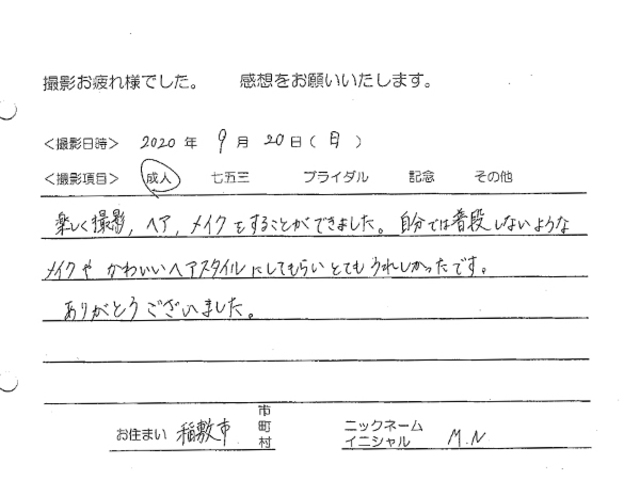 撮影お疲れ様でした。 感想をお願いいたします。
<撮影日時> 2020 年 9 月 20 日 ( 日 )
<撮影項目> 成人 七五三 ブライダル 記念 その他
楽しく撮影, ヘア, メイクをすることができました。自分では普段しないような
メイクや かわいいヘアスタイルにしてもらいとてもうれしかったです。
ありがとうございました。
お住まい 稲敷市 市 町 村 ニックネーム イニシャル M.N